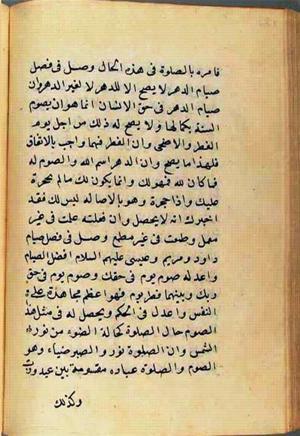 فامره بالصلوة فى هذه الحال وصل فى فصل
صيام الدهر لا يصح الا للدهر لا لغير الدهر فان
صيام الدهر فى حق الانسان انما هو ان يصوم
السنة بكمالها ولا يصح له ذلك من اجل يوم
الفطر والاضحى وان الفطر فيهما واجب بالاتفاق
فلهذا ما يصح وان الدهر اسم الله والصوم له
فما كان لله فهو لك وانما يكون لك ما لم يحجره
عليك واذا حجره وهو بالاصالة ليس لك فقد
اخبرك انه لا يحصل وان فعلته عملت فى غير
معمل وطمعت فى غير مطمع وصل فى فصل صيام
داود ومريم وعيسى عليهم السلام افضل الصيام
واعدله صوم يوم فى حقك وصوم يوم فى حق
ربك وبينهما فطر يوم فهو اعظم مجاهدة على
النفس واعدل فى الحكم ويحصل له فى مثل هذا
الصوم حال الصلوة كحالة الضوء من نور
الشمس وان الصلوة نور والصبر ضياء وهو
الصوم والصلوة عبادة مقسومة بين عبد ورب
وكذلك